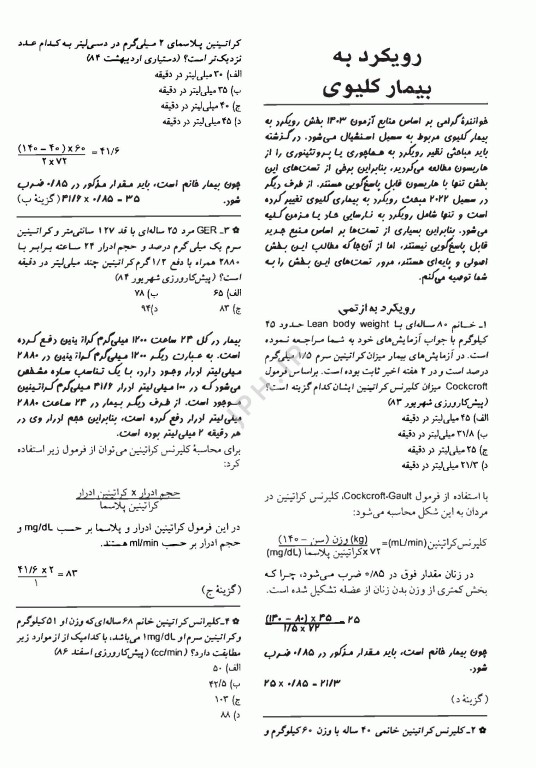 رویکرد به
بیمار کلیوی
خوانندهٔ گرامی بر اساس منابع آزمون ۱۴۰۳ بخش رویکرد به
بیمار کلیوی مربوط به سسیل استقبال می‌شود. در گذشته
باید مباحثی نظیر رویکرد به هماچوری یا پروتئینوری را از
هاریسون مطالعه می‌کردید، بنابراین برخی از تست‌های این
بخش تنها با هاریسون قابل پاسخ‌گویی هستند. از طرف دیگر
در سسیل ۲۰۲۲ مبحث رویکرد به بیماری کلیوی تغییر کرده
است و تنها شامل رویکرد به نارسایی حاد یا مزمن کلیه
می‌شود. بنابراین بسیاری از تست‌ها بر اساس منبع جدید
قابل پاسخ‌گویی نیستند، اما از آن‌جا که مطالب این بخش
اصولی و پایه‌ای هستند، مرور تست‌های این بخش را به
شما توصیه می‌کنم.
رویکرد به ازتمی
۱ـ خانم ۸۰ ساله‌ای با Lean body weight حدود ۴۵
کیلوگرم با جواب آزمایش‌های خود به شما مراجعه نموده
است. در آزمایش‌های بیمار میزان کراتینین سرم ۱/۵ میلی‌گرم
درصد است و در ۲ هفته اخیر ثابت بوده است. براساس فرمول
Cockcroft میزان کلیرنس کراتینین ایشان کدام گزینه است؟
(پیش‌کارورزی شهریور ۸۳)
الف) ۴۵ میلی‌لیتر در دقیقه
ب) ۳۱/۸ میلی‌لیتر در دقیقه
ج) ۲۵ میلی‌لیتر در دقیقه
د) ۲۱/۳ میلی‌لیتر در دقیقه
با استفاده از فرمول Cockcroft-Gault، کلیرنس کراتینین در
مردان به این شکل محاسبه می‌شود:
کلیرنس کراتینین (mL/min) = (kg) وزن (سن − ۱۴۰)
۷۲ × کراتینین پلاسما (mg/dL)
در زنان مقدار فوق در ۰/۸۵ ضرب می‌شود، چرا که
بخش کمتری از وزن بدن زنان از عضله تشکیل شده است.
(۱۴۰ − ۸۰) × ۴۵ = ۲۵
۱/۵ × ۷۲
چون بیمار خانم است، باید مقدار مذکور در ۰/۸۵ ضرب
شود.
۲۵ × ۰/۸۵ = ۲۱/۳
(گزینهٔ د)
✿ ۲ـ کلیرنس کراتینین خانمی ۴۰ ساله با وزن ۶۰ کیلوگرم و
کراتینین پلاسمای ۲ میلی‌گرم در دسی‌لیتر به کدام عدد
نزدیک‌تر است؟ (دستیاری اردیبهشت ۸۴)
الف) ۳۰ میلی‌لیتر در دقیقه
ب) ۳۵ میلی‌لیتر در دقیقه
ج) ۴۰ میلی‌لیتر در دقیقه
د) ۴۵ میلی‌لیتر در دقیقه
(۱۴۰ − ۴۰) × ۶۰ = ۴۱/۶
۲ × ۷۲
چون بیمار خانم است، باید مقدار مذکور در ۰/۸۵ ضرب
شود. ۴۱/۶ × ۰/۸۵ = ۳۵ (گزینهٔ ب)
✿ ۳ـ GFR مرد ۲۵ ساله‌ای با قد ۱۲۷ سانتی‌متر و کراتینین
سرم یک میلی گرم درصد و حجم ادرار ۲۴ ساعته برابر با
۲۸۸۰ همراه با دفع ۱/۲ گرم کراتینین چند میلی‌لیتر در دقیقه
است؟ (پیش‌کارورزی شهریور ۸۴)
الف) ۶۵ ب) ۷۸
ج) ۸۳ د) ۹۴
بیمار در کل ۲۴ ساعت ۱۲۰۰ میلی‌گرم کراتینین دفع کرده
است. به عبارت دیگر ۱۲۰۰ میلی‌گرم کراتینین در ۲۸۸۰
میلی‌لیتر ادرار وجود دارد، با یک تناسب ساده مشخص
می‌شود که در ۱۰۰ میلی‌لیتر ادرار ۴۱/۶ میلی‌گرم کراتینین
موجود است. از طرف دیگر بیمار در ۲۴ ساعت ۲۸۸۰
میلی‌لیتر ادرار دفع کرده است، بنابراین حجم ادرار وی در
هر دقیقه ۲ میلی‌لیتر بوده است.
برای محاسبهٔ کلیرنس کراتینین می‌توان از فرمول زیر استفاده
کرد:
حجم ادرار × کراتینین ادرار
کراتینین پلاسما
در این فرمول کراتینین ادرار و پلاسما بر حسب mg/dL و
حجم ادرار بر حسب ml/min هستند.
۴۱/۶ × ۲ = ۸۳
۱
(گزینهٔ ج)
✿ ۴ـ کلیرانس کراتینین خانم ۶۸ ساله‌ای که وزن او ۵۱ کیلوگرم
و کراتینین سرم او ۱mg/dL می‌باشد، با کدامیک از از موارد زیر
مطابقت دارد؟ (cc/min) (پیش‌کارورزی اسفند ۸۶)
الف) ۵۰
ب) ۴۲/۵
ج) ۱۰۳
د) ۸۸